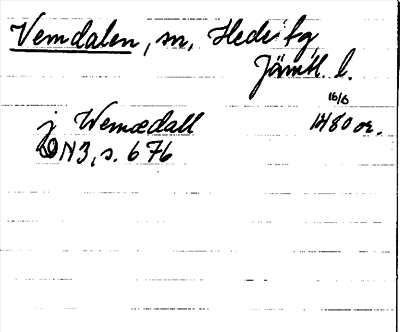 Vemdalen, sn, Hede tg,
Jämtl. l.
16/6
j Wemædall 1480 or.
DN 3, s. 676